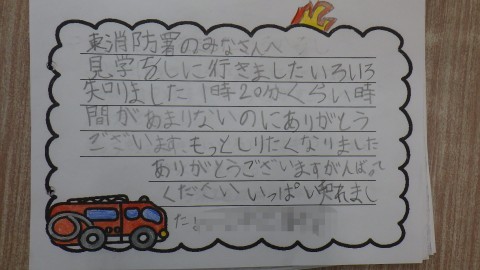 東消防署のみなさんへ
見学をしに行きましたいろいろ
知りました 1時20分くらい時
間があまりないのにありがとう
ございます。もっとしりたくなりました
ありがとうございますがんばって
くださいいっぱい
た!